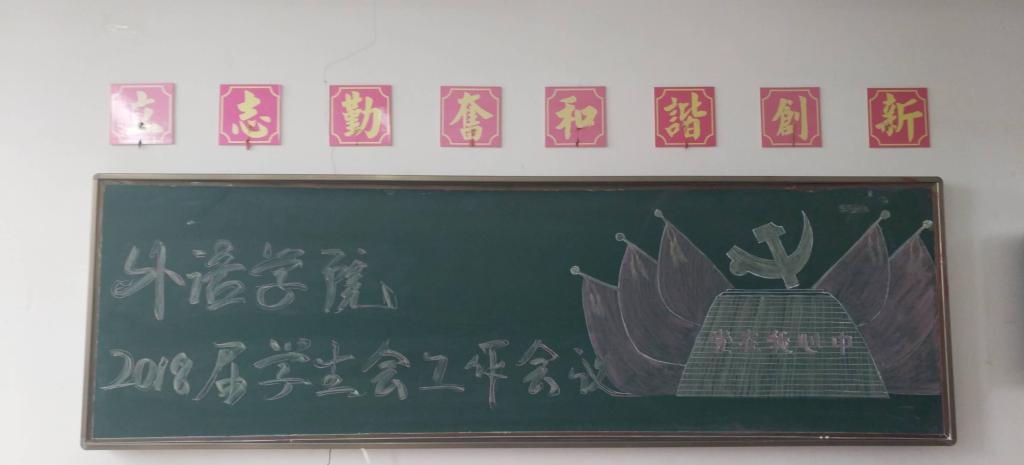 立志勤奮和諧創新
外语学院
2018届学生会工作会议